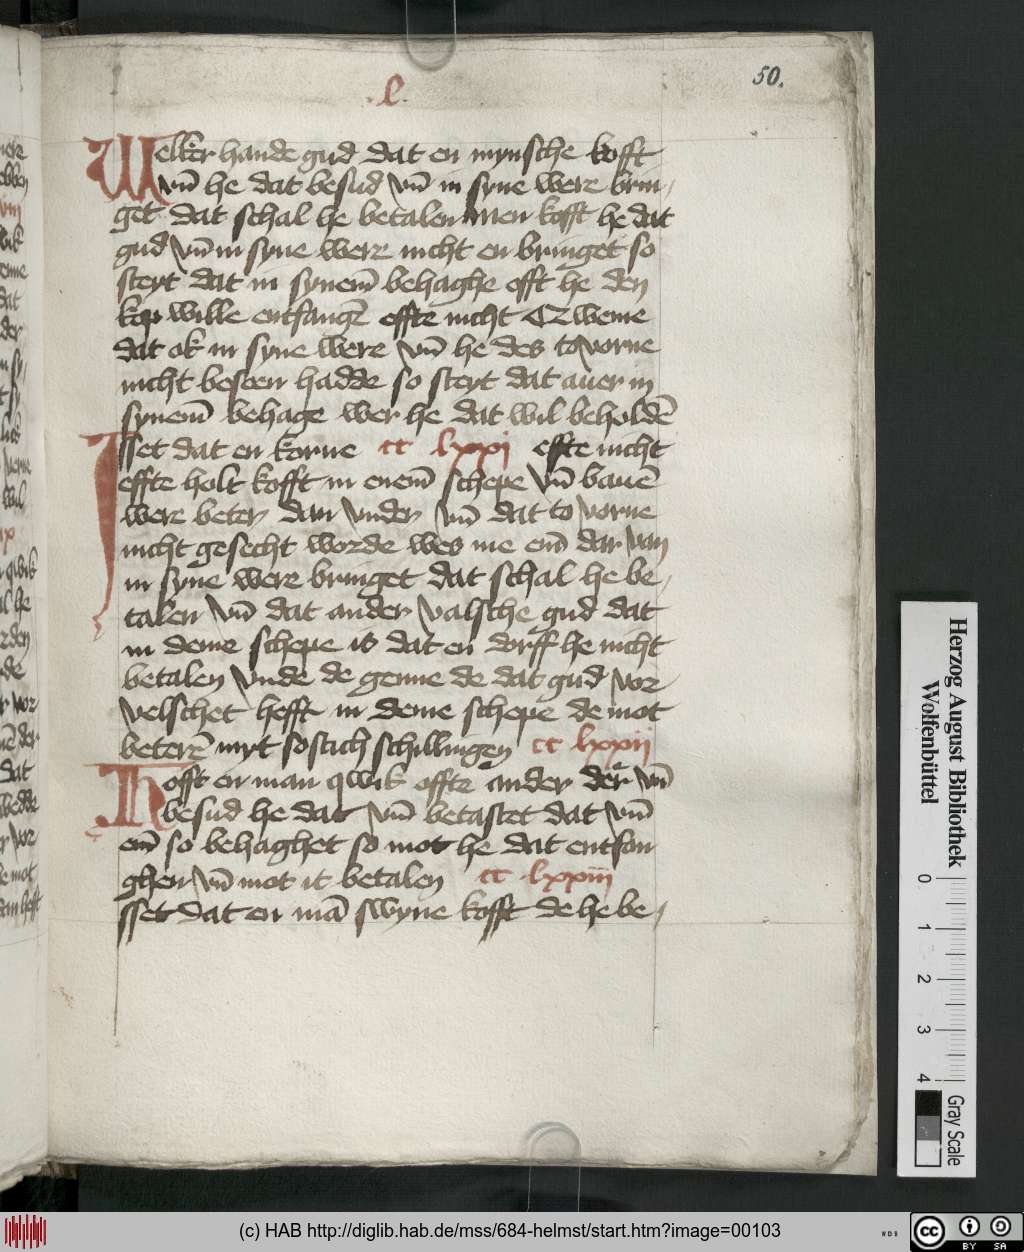 .l.
50.
Welker hande gud dat en mynsche kofft
vn̄ he dat besud vn̄ in syne were brin
get dat schal he betalen men kofft he dat
gud vn̄ in syne were nicht en bringet so
steyt dat in synem̄ behaghe efft he den
kop wille entfangē effte nicht Czweme
dat ok in syne were vn̄ he des to vorne
nicht beseen hadde so steyt dat auer in
synem̄ behage wer he dat wil beholdē
Isset dat en korne cc lxxj effte nicht
effte holt kofft in enem̄ schepe vn̄ bauē
were beter dan vnder vn̄ dat to vorne
nicht gesecht worde wes me em̄ dar van
in syne were bringet dat schal he be
talen vn̄ dat ander valsche gud dat
in deme schepe is dat en dorff he nicht
betalen vnde de genne de dat gud vor
velschet hefft in deme schepe de mot
beterē myt sostich schillingen cc lxxij
Kofft en man qwik effte ander der vn̄
besud he dat vn̄ betastet dat vn̄
em̄ so behaghet so mot he dat entfan
ghen vn̄ mot it betalen cc lxxiij
sset dat en mā swyne kofft de he be
Herzog August Bibliothek
Wolfenbüttel
0 1 2 3 4
Gray Scale
(c) HAB http://diglib.hab.de/mss/684-helmst/start.htm?image=00103
WDB
cc BY SA